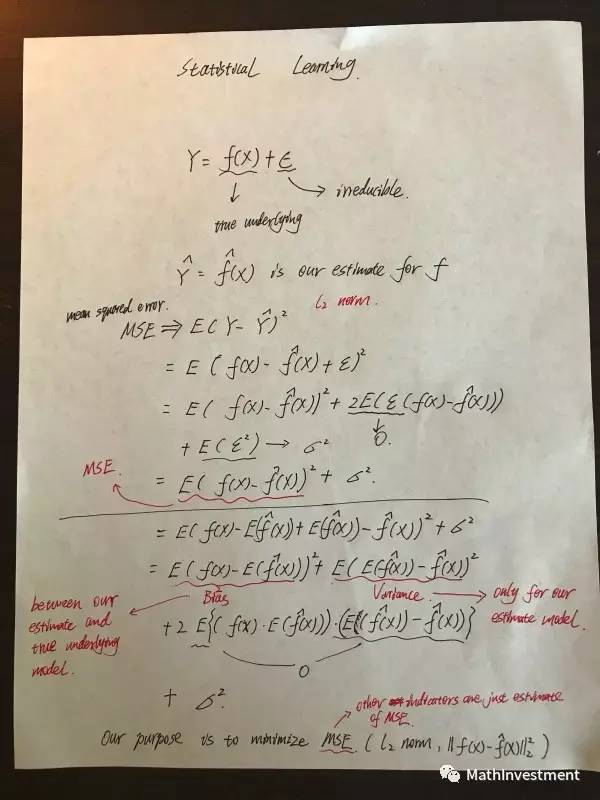 Statistical Learning.
Y = f(X) + ε
true underlying
irreducible.
Ŷ = f̂(X) is our estimate for f
mean squared error.
l₂ norm.
MSE ⇒ E(Y - Ŷ)²
= E (f(x) - f̂(x) + ε)²
= E( f(x) - f̂(x))² + 2E(ε(f(x) - f̂(x)))
0.
+ E(ε²) → σ²
MSE.
= E( f(x) - f̂(x))² + σ².
= E(f(x) - E(f̂(x)) + E(f̂(x)) - f̂(x))² + σ²
= E(f(x) - E(f̂(x)))² + E(E(f̂(x)) - f̂(x))²
Bias
Variance
between our
estimate and
true underlying
model.
only for our
estimate model.
+ 2 E{(f(x) · E(f̂(x))) · (E(f̂(x)) - f̂(x))}
0
+ σ².
other indicators are just estimate
of MSE.
Our purpose is to minimize MSE. (l₂ norm, ||f(x) - f̂(x)||₂²)
MathInvestment